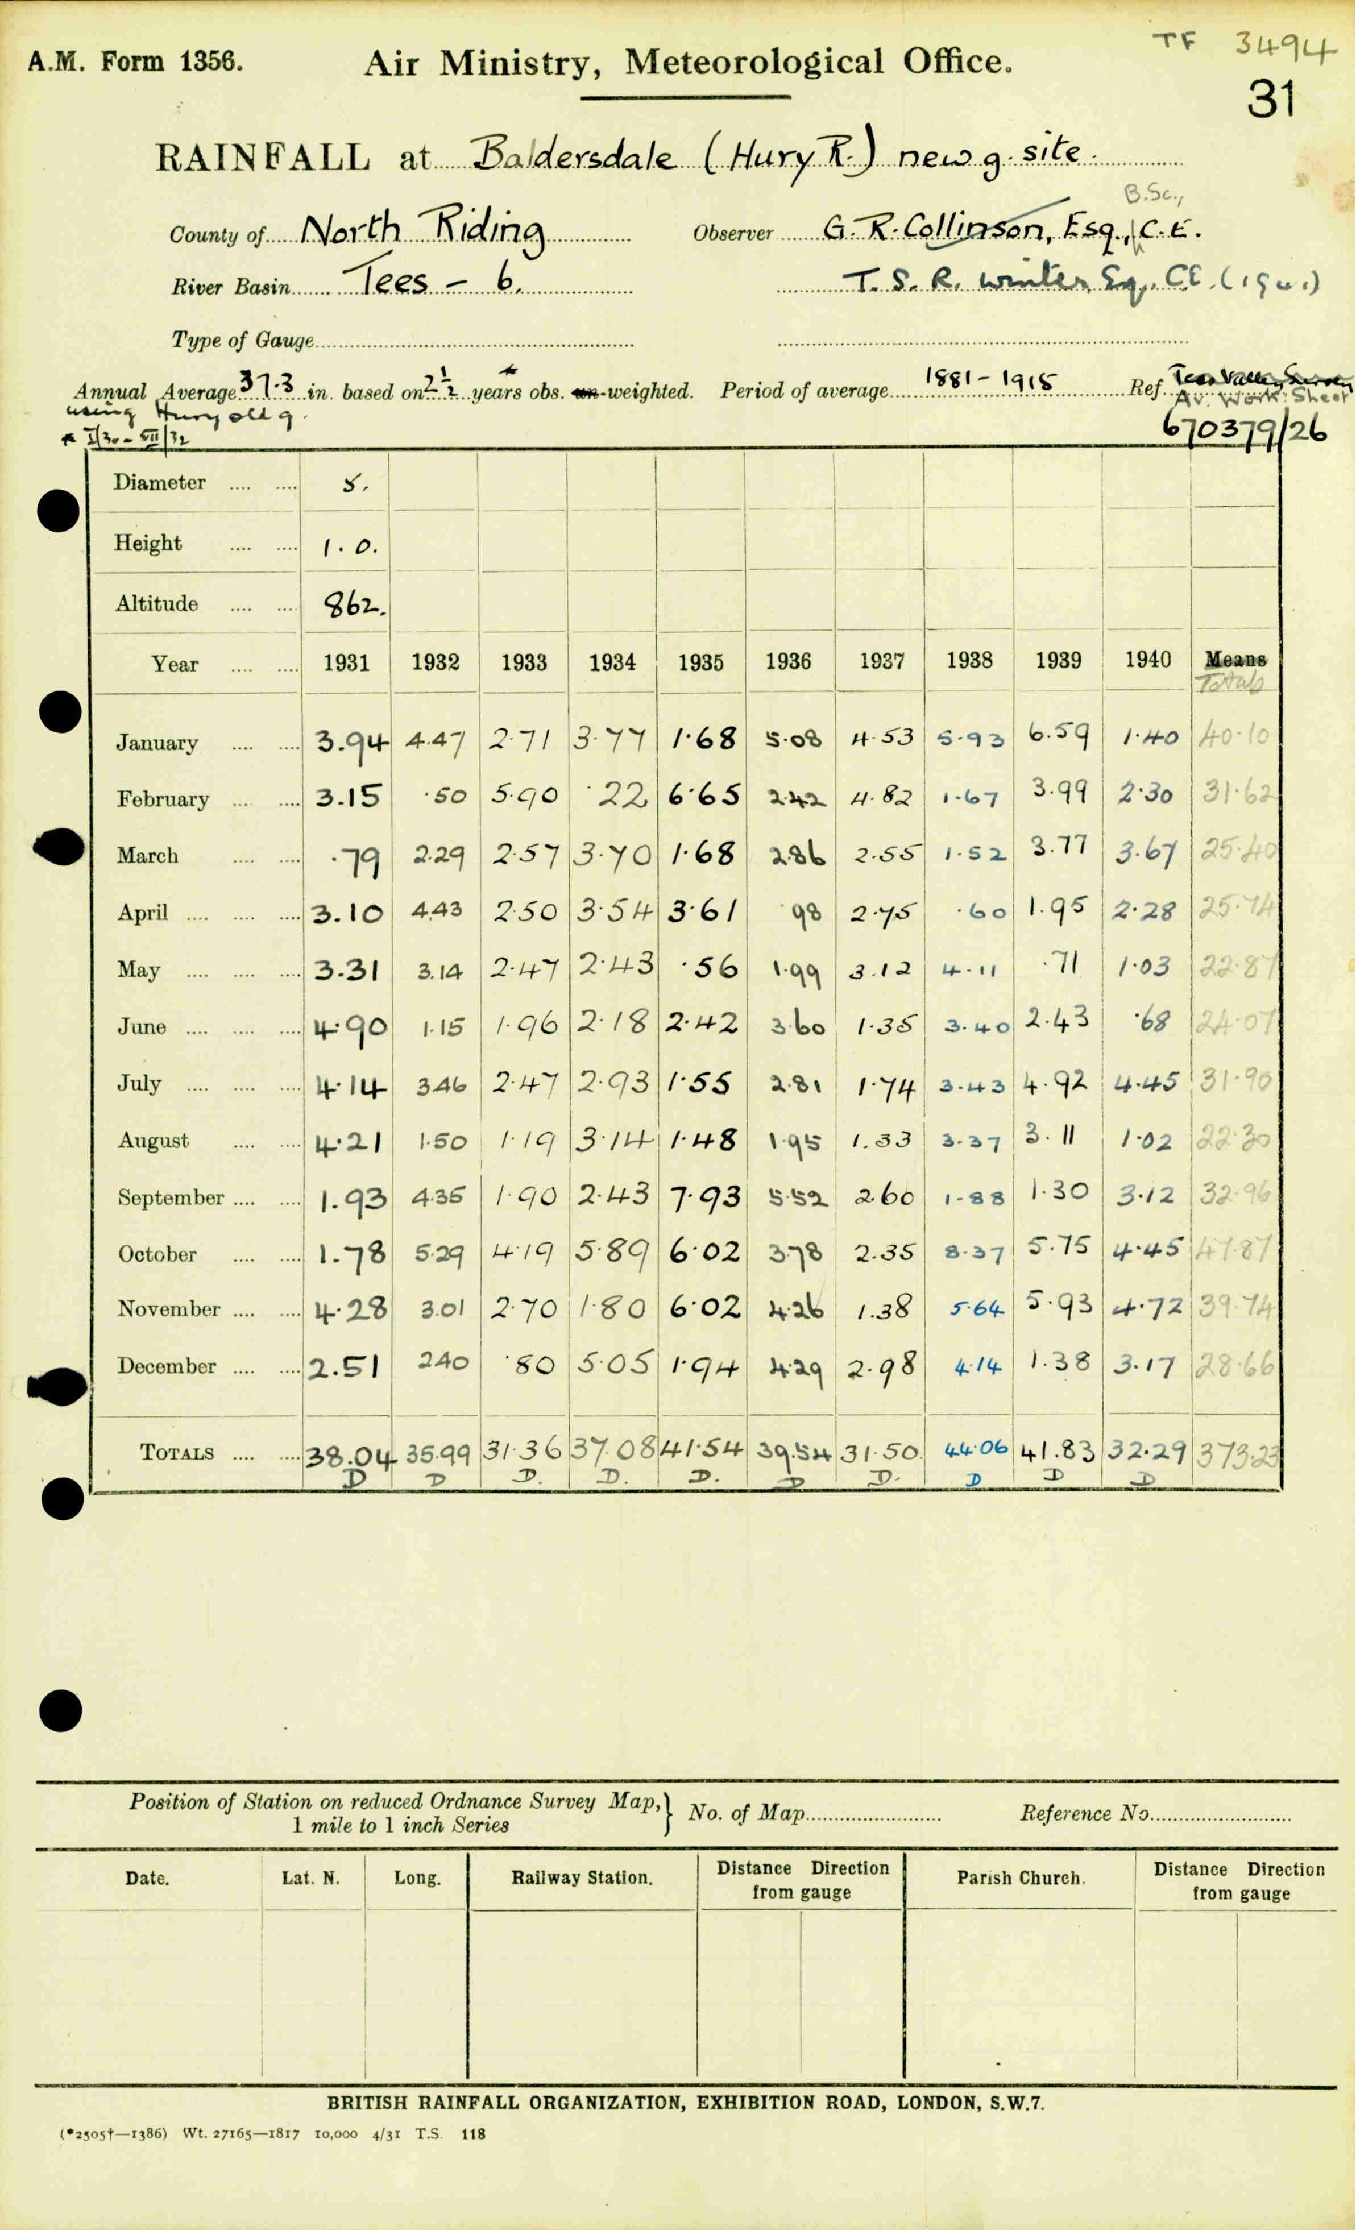 TF 3494
A.M. Form 1356. Air Ministry, Meteorological Office.
31
RAINFALL at Baldersdale (Hury R.) new g. site.
B.Sc.,
County of North Riding Observer G. R. Collinson, Esq., C.E.
River Basin Tees – 6. T. S. R. Winter Esq., C.E. (1941)
Type of Gauge
Annual Average 37.3 in. based on 2½ years* obs. un-weighted. Period of average 1881–1915 Ref. Tees Valley Survey
using Hury old g. Av. Work. Sheet
* I/30 – VII/32 670379/26
Diameter .... .... 5.
Height .... .... 1.0.
Altitude .... .... 862.
Year .... .... 1931 1932 1933 1934 1935 1936 1937 1938 1939 1940 Means
Totals
January .... .... 3.94 4.47 2.71 3.77 1.68 5.08 4.53 5.93 6.59 1.40 40.10
February .... .... 3.15 .50 5.90 .22 6.65 2.42 4.82 1.67 3.99 2.30 31.62
March .... .... .79 2.29 2.57 3.70 1.68 2.86 2.55 1.52 3.77 3.67 25.40
April .... .... .... 3.10 4.43 2.50 3.54 3.61 .98 2.75 .60 1.95 2.28 25.74
May .... .... .... 3.31 3.14 2.47 2.43 .56 1.99 3.12 4.11 .71 1.03 22.87
June .... .... .... 4.90 1.15 1.96 2.18 2.42 3.60 1.35 3.40 2.43 .68 24.07
July .... .... .... 4.14 3.46 2.47 2.93 1.55 2.81 1.74 3.43 4.92 4.45 31.90
August .... .... 4.21 1.50 1.19 3.14 1.48 1.95 1.33 3.37 3.11 1.02 22.30
September .... .... 1.93 4.35 1.90 2.43 7.93 5.52 2.60 1.88 1.30 3.12 32.96
October .... .... 1.78 5.29 4.19 5.89 6.02 3.78 2.35 8.37 5.75 4.45 47.87
November .... .... 4.28 3.01 2.70 1.80 6.02 4.26 1.38 5.64 5.93 4.72 39.74
December .... .... 2.51 2.40 .80 5.05 1.94 4.29 2.98 4.14 1.38 3.17 28.66
TOTALS .... .... 38.04 35.99 31.36 37.08 41.54 39.54 31.50 44.06 41.83 32.29 373.23
D D D. D. D. D D. D D D
Position of Station on reduced Ordnance Survey Map, } No. of Map Reference No.
1 mile to 1 inch Series
Date. Lat. N. Long. Railway Station. Distance Direction from gauge Parish Church. Distance Direction from gauge
BRITISH RAINFALL ORGANIZATION, EXHIBITION ROAD, LONDON, S.W.7.
(*2505†—1386) Wt. 27165—1817 10,000 4/31 T.S. 118